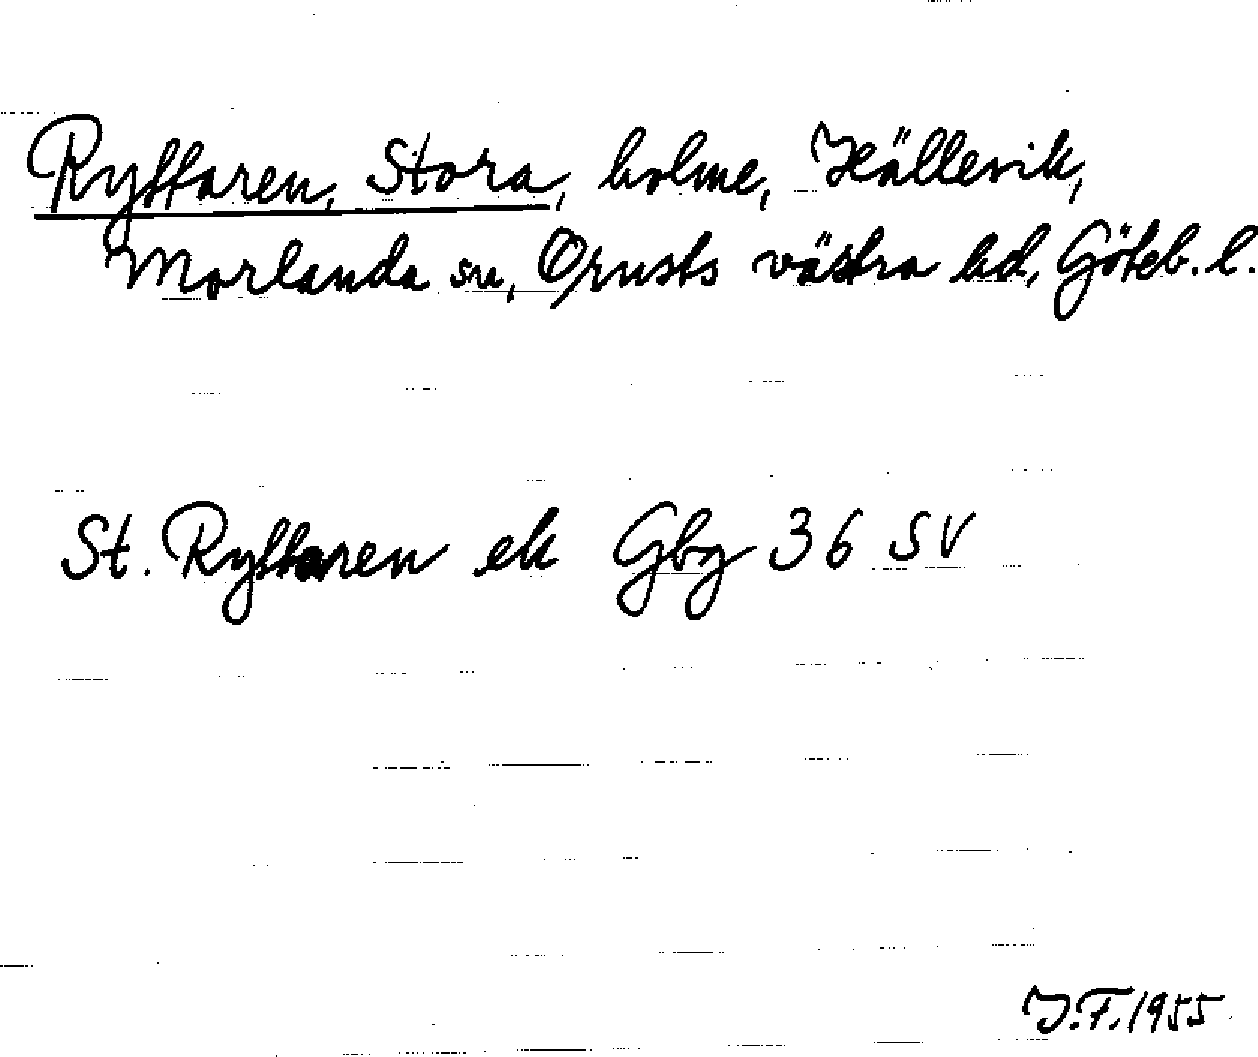 Ryffaren, Stora, holme, Hällevik,
Morlanda sn, Orusts västra hd, Göteb. l.
St. Ryffaren ek Gbg 36 SV
J.F. 1955